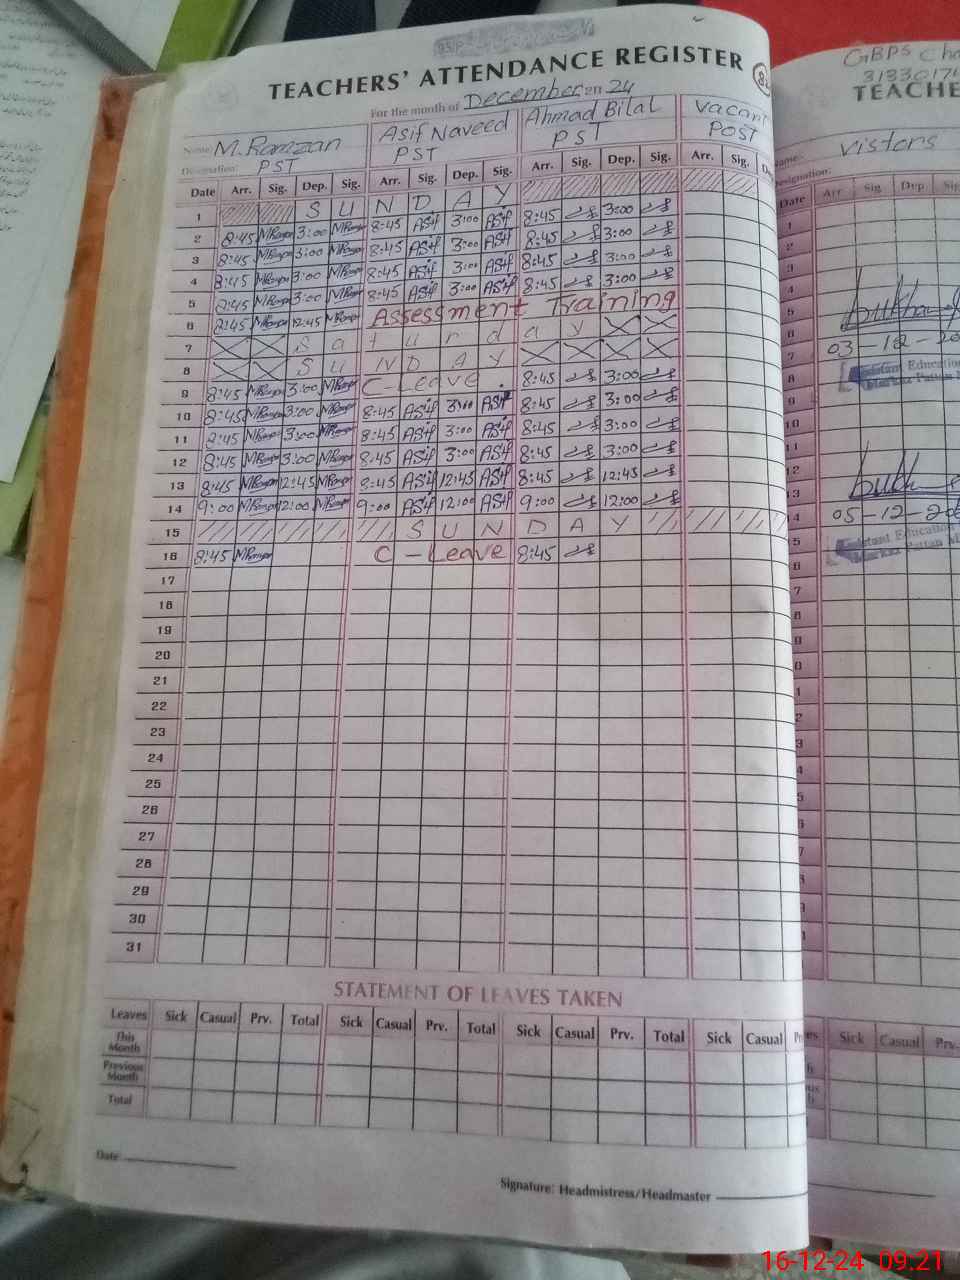 TEACHERS' ATTENDANCE REGISTER
For the month of December 2024
Name: M.Ramzan Asif Naveed Ahmad Bilal Vacant
Designation: PST PST PST POST
Date Arr. Sig. Dep. Sig. Arr. Sig. Dep. Sig. Arr. Sig. Dep. Sig. Arr. Sig.
1 SUNDAY
2 8:45 MRamzan 3:00 MRamzan 8:45 Asif 3:00 Asif 8:45 3:00
3 8:45 MRamzan 3:00 MRamzan 8:45 Asif 3:00 Asif 8:45 3:00
4 8:45 MRamzan 3:00 MRamzan 8:45 Asif 3:00 Asif 8:45 3:00
5 8:45 MRamzan 3:00 MRamzan 8:45 Asif 3:00 Asif 8:45 3:00
6 8:45 MRamzan 12:45 MRamzan Assessment Training
7 Saturday
8 SUNDAY
9 8:45 MRamzan 3:00 MRamzan C-Leave. 8:45 3:00
10 8:45 MRamzan 3:00 MRamzan 8:45 Asif 3:00 Asif 8:45 3:00
11 8:45 MRamzan 3:00 MRamzan 8:45 Asif 3:00 Asif 8:45 3:00
12 8:45 MRamzan 3:00 MRamzan 8:45 Asif 3:00 Asif 8:45 3:00
13 8:45 MRamzan 12:45 MRamzan 8:45 Asif 12:45 Asif 8:45 12:45
14 9:00 MRamzan 12:00 MRamzan 9:00 Asif 12:00 Asif 9:00 12:00
15 SUNDAY
16 8:45 MRamzan C-Leave 8:45
17
18
19
20
21
22
23
24
25
26
27
28
29
30
31
STATEMENT OF LEAVES TAKEN
Leaves Sick Casual Prv. Total Sick Casual Prv. Total Sick Casual Prv. Total Sick Casual
This Month
Previous Month
Total
Date
Signature: Headmistress/Headmaster
GBPS
TEACHE
Name: Vistors
Designation:
Date Arr Sig Dep Sig
03-12-20
Assistant Education
Markaz Pattan
05-12-20
Assistant Education
Markaz Pattan
Sick Casual Prv.
16-12-24 09:21